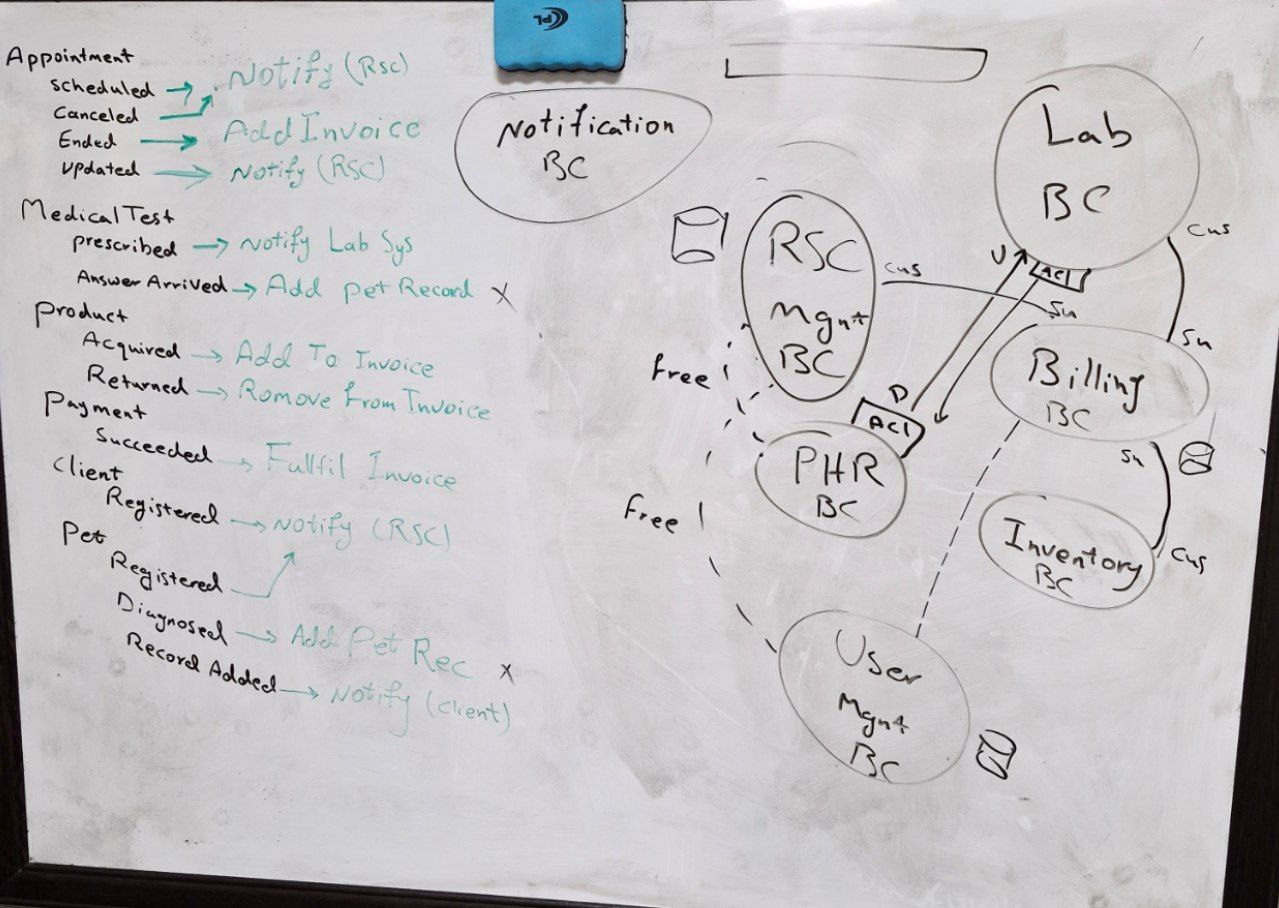 Appointment
scheduled → Notify (Rsc)
Canceled
Ended → Add Invoice
updated → Notify (RSC)
Medical Test
prescribed → Notify Lab Sys
Answer Arrived → Add pet Record X
product
Acquired → Add To Invoice
Returned → Romove from Invoice
Payment
Succeeded → Fullfil Invoice
Client
Registered → Notify (RSC)
Pet
Registered
Diagnosed → Add Pet Rec X
Record Added → Notify (client)
CPL
Notification
BC
RSC
Mgnt
BC
cus
Su
Lab
BC
cus
U
ACL
Su
Billing
BC
Su
free
D
ACL
PHR
BC
Free
Inventory
BC
Cus
User
Mgnt
BC